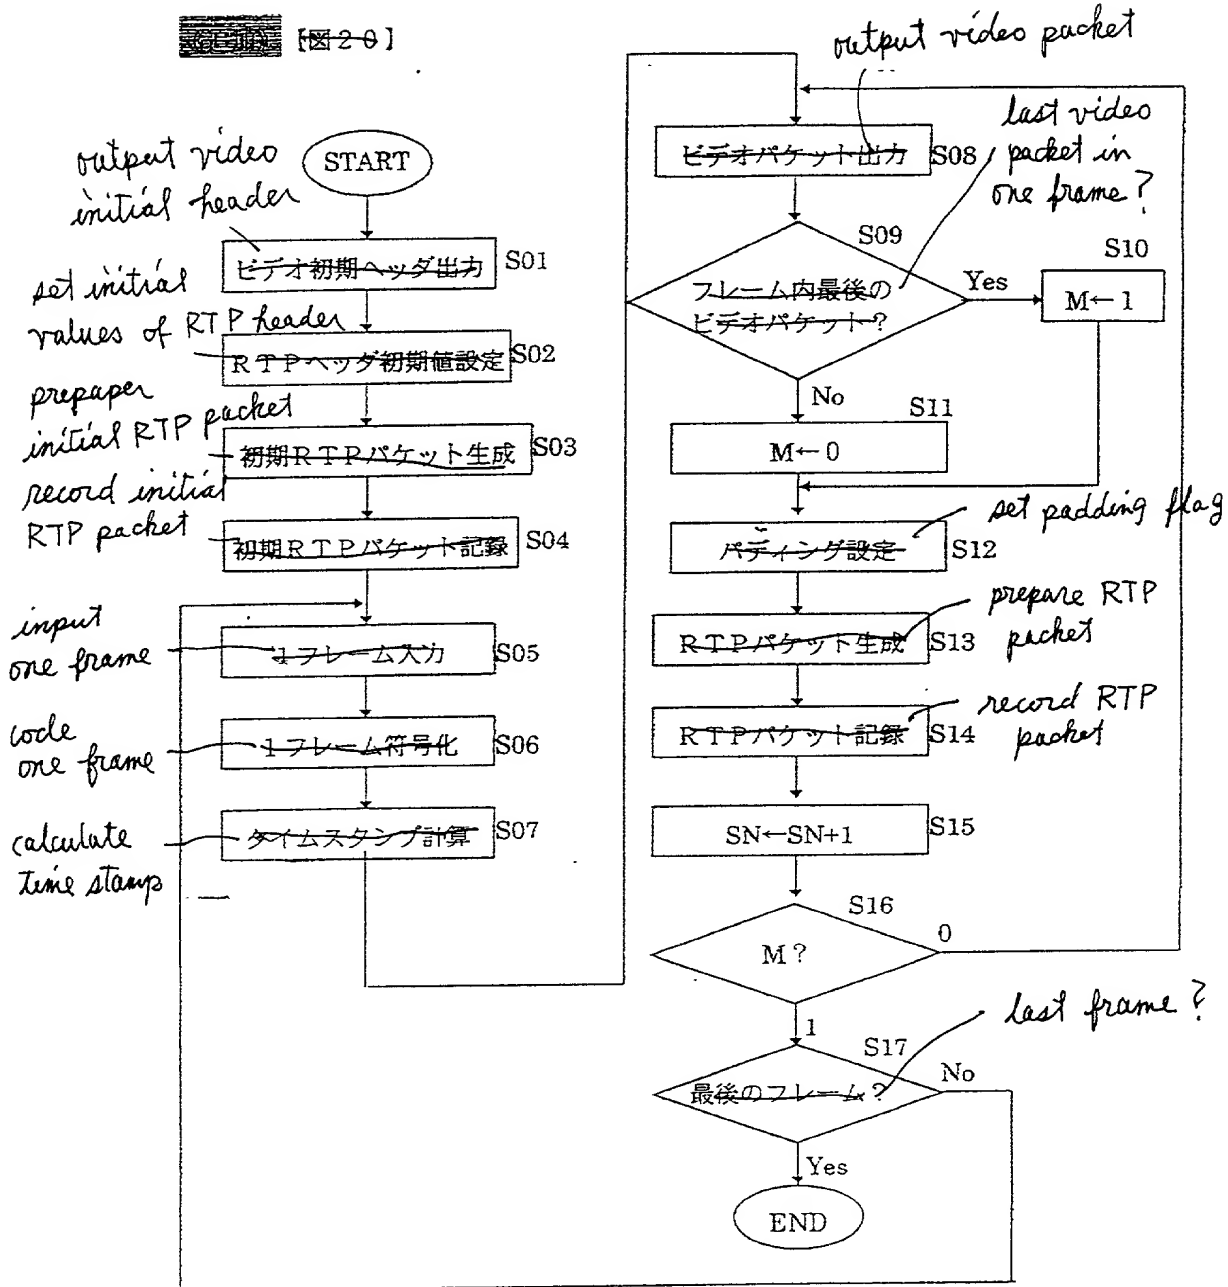 【図20】
START
output video
initial header
ビデオ初期ヘッダ出力
S01
set initial
values of RTP header
RTPヘッダ初期値設定
S02
prepaper
initial RTP packet
初期RTPパケット生成
S03
record initial
RTP packet
初期RTPパケット記録
S04
input
one frame
1フレーム入力
S05
code
one frame
1フレーム符号化
S06
calculate
time stamp
タイムスタンプ計算
S07
output video packet
ビデオパケット出力
S08
last video
packet in
one frame?
S09
フレーム内最後の
ビデオパケット?
Yes
S10
M←1
No
S11
M←0
set padding flag
パディング設定
S12
prepare RTP
packet
RTPパケット生成
S13
record RTP
packet
RTPパケット記録
S14
SN←SN+1
S15
S16
M?
0
1
last frame?
S17
最後のフレーム?
No
Yes
END